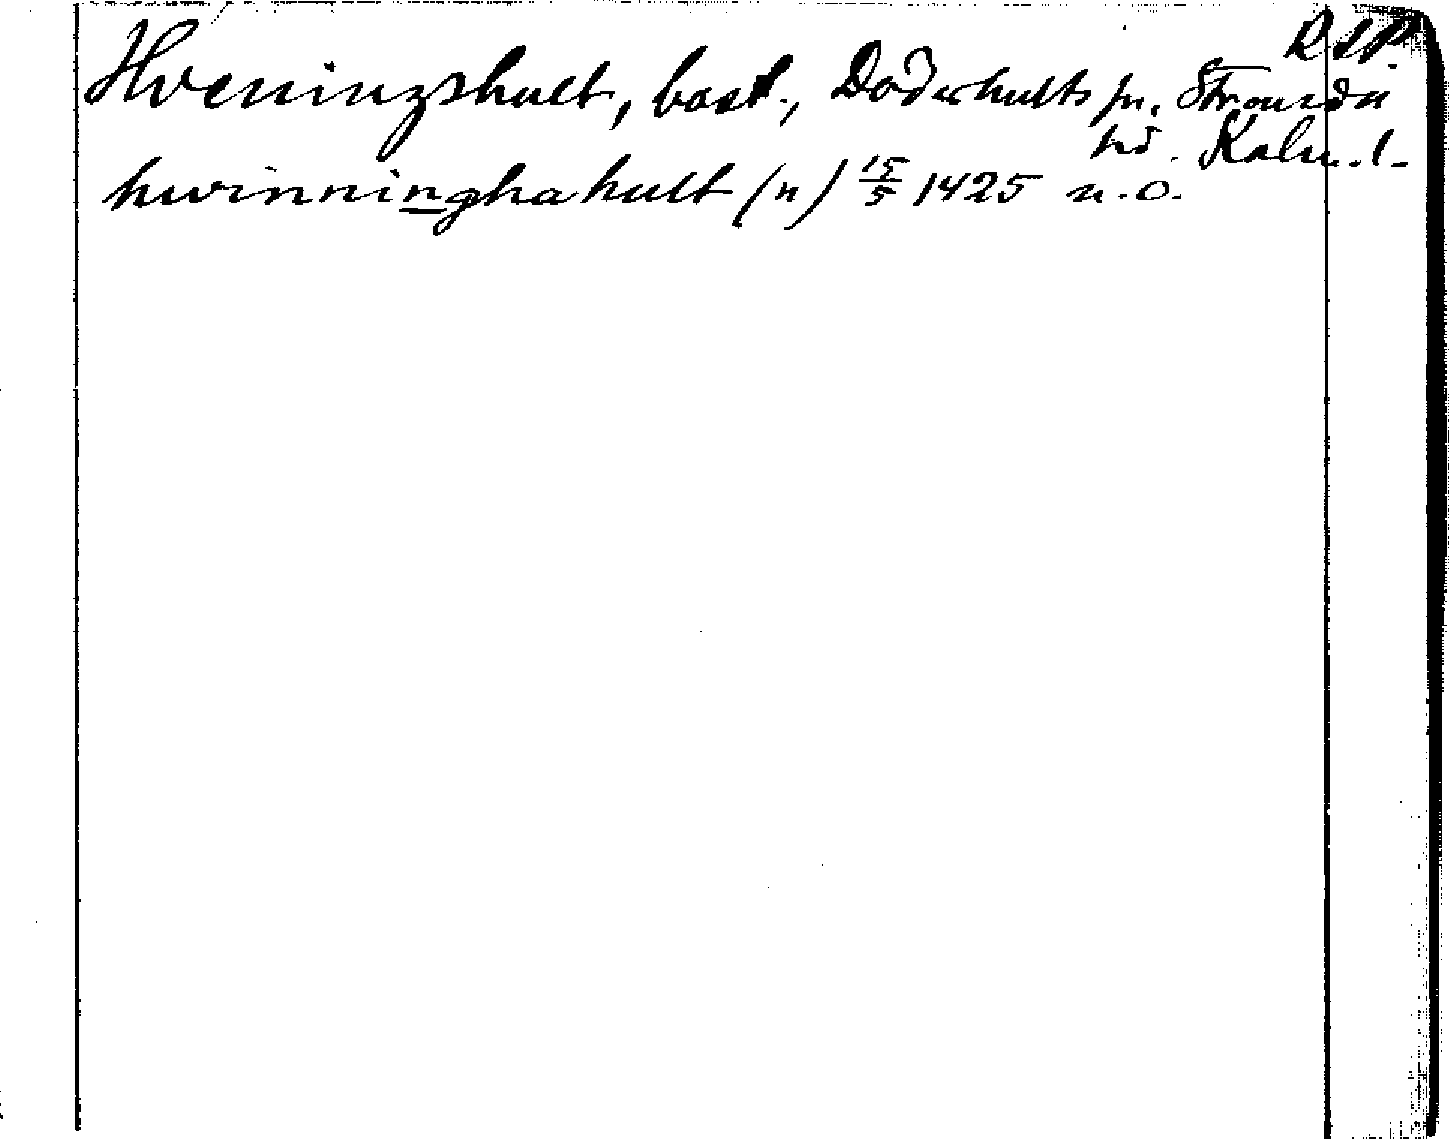 RAP.
Hveningshult, bost., Döderhults sn, Stranda
hd. Kalm. l.
hwinninghahult (n) 15/5 1425 n.o.